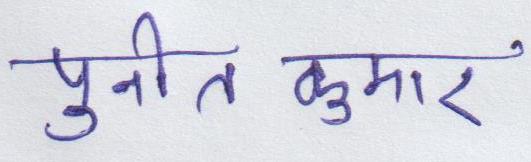 पुनीत कुमार